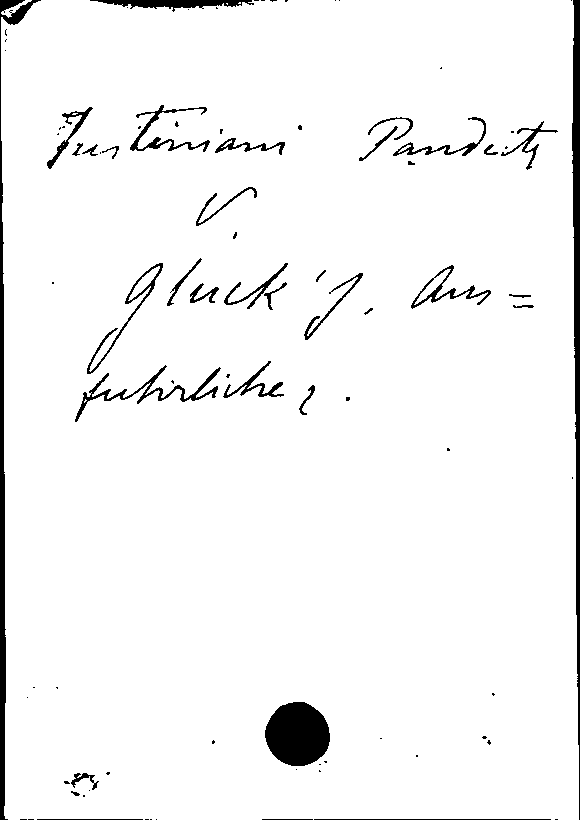 Justiniani Pandects
V.
Gluck's. Aus=
fuhrliche